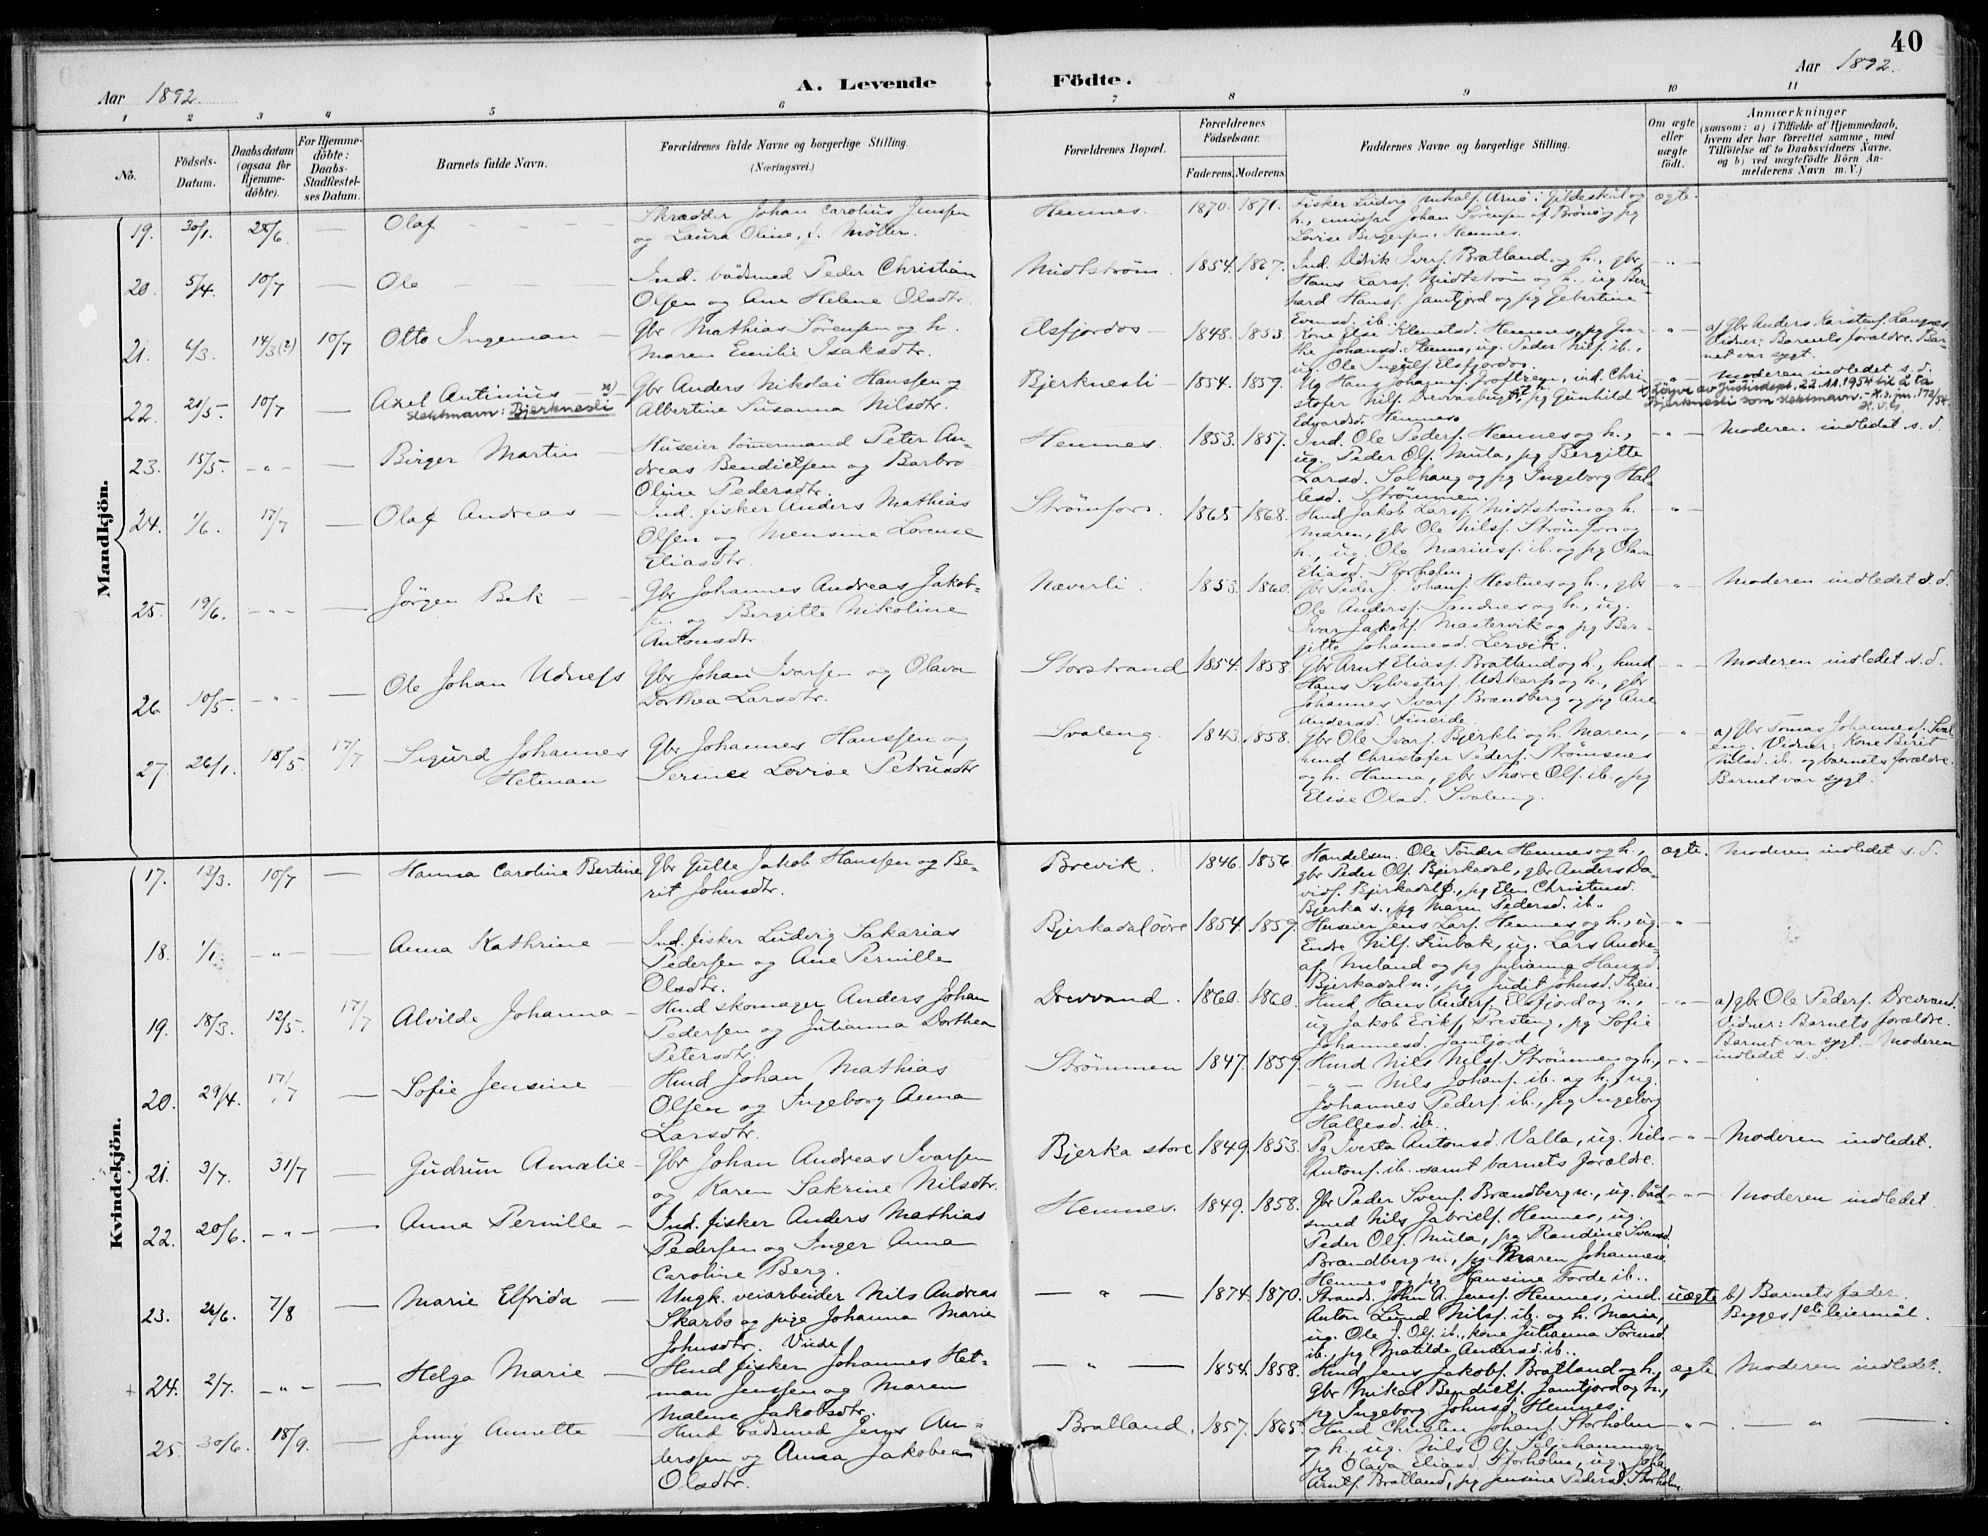 40
Aar 1892.
A. Levende Födte.
Aar 1892.
1 2 3 4 5 6 7 8 9 10 11
No.
Födsels-
Datum.
Daabsdatum
(ogsaa for
Hjemme-
döbte).
For Hjemme-
döbte:
Daabs-
Stadfæstel-
ses Datum.
Barnets fulde Navn.
Forældrenes fulde Navne og borgerlige Stilling.
(Næringsvei.)
Forældrenes Bopæl.
Forældrenes
Födselsaar.
Faderens. Moderens.
Faddernes Navne og borgerlige Stilling.
Om ægte
eller
uægte
födt.
Anmærkninger
(saasom: a) i Tilfælde af Hjemmedaab,
hvem der har forrettet samme, med
Tilföielse af to Daabsvidners Navne,
og b) ved uægtefödte Börn An-
melderens Navn m. V.)
Mandkjön.
19. 30/1. 26/6. — Olaf
Skrædder Johan Carolius Jenssen
og Laura Oline, f. Møller.
Hemnes. 1870. 1871.
Fisker Ludvig Mikalf. Arnø i Gildeskaal og
h., Johan Sörensen af Brönö, pg
Lovise Bergersen, Hemnes.
ægte.
20. 5/4. 10/7 — Ole
Ind. bådsmed Peder Christian
Olsen og Ane Helene Olsdtr.
Midtström 1854. 1867.
Ind. Didrik Ivarf. Bratland og h., gbr
Hans Larsf. Midtström og h., ug. Ber-
hard Hansf. Jamtjord og pg Gebertine
Evensd. ib.
21. 4/3. 14/3(?) 10/7 Otto Ingeman —
Gbr Mathias Sörensen og h.
Maren Emilie Isaksdtr.
Elsfjordos — 1848. 1853.
Kone Else Klemetsd. Hemnes, pg
Johansd. Hemnes, ug. Peder Nilsf. ib.,
ug. Ole Ingulf. Elsfjordos.
a) Gbr Anders Karstenf. Langnes.
Vidner: Barnets forældre. Bar-
net var sygt.
22. 21/5. 10/7 — Axel Antinius x)
slektsnavn: Bjerknesli
Gbr Anders Nikolai Hanssen og
Albertine Susanna Nilsdtr.
Bjerknesli — 1854. 1859.
Ug Hans Johannesf. ind. Chri-
stofer Nilsf. pg Gunhild
Edvardsd. Hemnes.
Moderen indledet s. d.
x) Löyve av Justisdept. 22.11.1954 til å ta
Bjerknesli som slektsnavn. - K.s. jnr. 172/54.
H.V.S.
23. 15/5. -"- — Birger Martin —
Huseier tömmermand Peter An-
dreas Bendictsen og Barbro
Oline Pedersdtr.
Hemnes. 1853. 1857.
Ind. Ole Pedersf. Hemnes og h.,
ug. Peder Olf. Mula, pg Bergitte
Larsd. Solhaug og pg Ingeborg Hal-
lesd. Strömmen.
Moderen indledet s. d.
24. 1/6. 17/7 — Olaf Andreas —
Ind. fisker Anders Mathias
Olsen og Mensine Lorense
Eliasdtr.
Strömfors. 1865 1868.
Hmd Jakob Larsf. Midtström og h.
Maren, gbr Ole Nilsf. Strömfors og
h., ug. Ole Mariusf. ib. og pg Olava
Eliasd. Storholm.
25. 19/6. -"- — Jörgen Bek —
Gbr Johannes Andreas Jakob-
sen og Bergitte Nikoline
Antonsdtr.
Næverli. 1853. 1860.
Gbr Peder J. Johanf. Hestnes og h., gbr
Ole Andersf. Sandnes og h., ug.
Ivar Jakobf. Mastervik og pg Ber-
gitte Johannesd. Lervik.
Moderen indledet s. d.
26. 10/5. -"- — Ole Johan Udness
Gbr Johan Ivarsen og Olava
Dorthea Larsdtr.
Storstrand 1854. 1858.
Gbr Arnt Eliasf. Bratland og h., hmd
Hans Sylvesterf. Udskarp og h., gbr
Johannes Ivarf. Brændberg og pg Ane
Andersd. Fineide.
Moderen indledet s. d.
27. 26/1. 18/5. 17/7 Sigurd Johannes
Hetman
Gbr Johannes Hanssen og
Serine Lovise Petrusdtr.
Svaleng. 1843. 1858.
Gbr Ole Ivarf. Bjerkli og h. Maren,
hmd Christofer Pedersf. Strömsnes
og h. Hanna, gbr Thore Olf. ib., pg
Elise Olad. Svaleng.
a) Gbr Tomas Johannesf. Sval-
eng. Vidner: Kone Berit
ib. og barnets forældre.
Barnet var sygt.
Kvindekjön.
17. 13/3. 10/7 — Hanna Caroline Bertine
Gbr Gulle Jakob Hanssen og Be-
rit Johnsdtr.
Brevik. 1846. 1856
Handelsm. Ole Tönder Hemnes og h.,
gbr Peder Olf. Bjerkadal, gbr Anders Da-
vidf. Bjerkadal ö., pg Elen Christensd.
Bjerka s., pg Maren Pedersd. ib..
ægte. Moderen indledet s. d.
18. 1/1. -"- — Anna Kathrine —
Ind. fisker Ludvig Sakarias
Pedersen og Ane Pernille
Olsdtr.
Bjerkadal övre 1854. 1859.
Huseier Jens Larsf. Hemnes og h., ug.
Endre Nilsf. Finbak, ug. Lars Andre-
af. Meland og pg Julianna Hansd.
Bjerkadal n., pg Judit Johnsd.
19. 18/3. 12/5. 17/7 Alvilde Johanna —
Hmd skomager Anders Johan
Pedersen og Julianna Dorthea
Petersdtr.
Drevvand. 1860. 1860.
Hmd Hans Andersf. Elsfjord og h.,
ug Jakob Erikf. Presteng, pg Sofie
Johannesd. Jamtjord.
a) gbr Ole Pedersf. Drevvand.
Vidner: Barnets forældre.
Barnet var sygt. - Moderen
indledet s. d.
20. 29/4. 17/7 — Sofie Jensine —
Hmd Johan Mathias
Olsen og Ingeborg Anna
Larsdtr.
Strömmen 1847. 1859.
Hmd Nils Nilsf. Strömmen og h.,
-"- Nils Johanf. ib. og h., ug.
Johannes Pedersf. ib., pg Ingeborg
Hallesd. ib..
21. 3/7. 31/7 — Gudrun Amalie —
Gbr Johan Andreas Ivarsen
og Karen Sakrine Nilsdtr.
Bjerka store 1849. 1853.
Pg Sverta Antonsd. Valla, ug. Nils
Antonf. ib. samt barnets forældre.
Moderen indledet.
22. 20/6. -"- — Anna Pernille —
Ind. fisker Anders Mathias
Pedersen og Inger Anna
Caroline Berg.
Hemnes. 1849. 1858.
Gbr Peder Svenf. Brændberg n., ug. båd-
smed Nils Gabrielf. Hemnes, ug.
Peder Olf. Mula, pg Randine Svensd.
Brændberg n., pg Maren Johannesd.
Hemnes og pg Hansine Forde ib..
Moderen indledet.
23. 24/6. 7/8 — Marie Elfrida —
Ungk. veiarbeider Nils Andreas
Skarbö og pige Johanna Marie
Johnsdtr. Vinde
— " — 1874. 1870.
Strands. John A. Jensf. Hemnes, ind.
Anton Lund Nilsf. ib. og h. Marie,
ug. Ole J. Olf. ib., kone Julianna Sörensd.
ib., pg Matilde Andersd. ib..
uægte b) Barnets fader.
Begges 1ste leiermål.
24. 2/7. -"- — Helga Marie —
Hmd fisker Johannes Het-
man Jenssen og Maren
Malene Jakobsdtr.
— " — 1854. 1858.
Hmd Jens Jakobf. Bratland og h.,
Gbr Mikal Bendictf. Jamtjord og h.,
pg Ingeborg Johnsd. Hemnes.
ægte Moderen indledet.
25. 30/6. 18/9. — Jenny Annette —
Hmd bådsmed Jens An-
derssen og Anna Jakobea
Olsdtr.
Bratland. 1857. 1865.
Hmd Christen Johanf. Storholm
og h., ug. Nils Olf. Seljehammer
pg Olava Eliasd. Storholm, ug. Johan
Arntf. Bratland, pg Jensine Pedersd. Storholm.
— " —